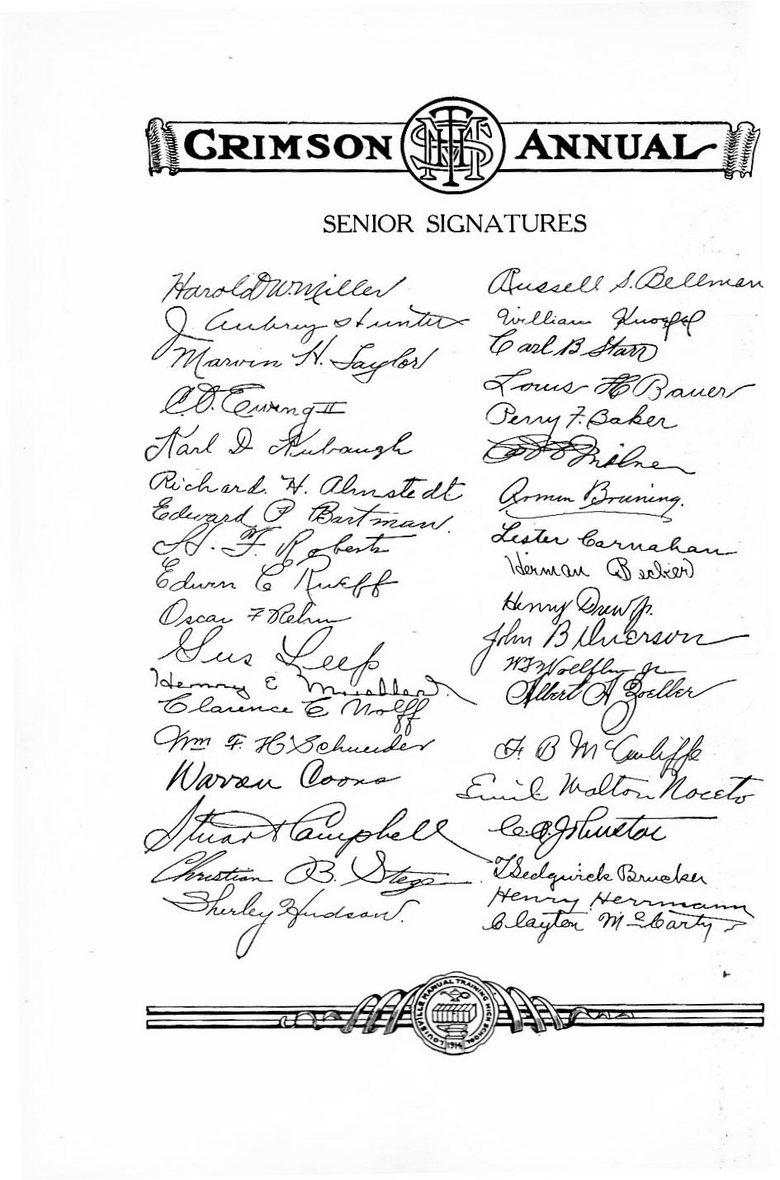 CRIMSON MTHS ANNUAL
SENIOR SIGNATURES
Harold W. Miller
J. Aubrey Hunter
Marvin H. Taylor
C.O. Ewing II
Karl D Aubaugh
Richard H. Almstedt
Edward P Bartman.
H. F. Roberts
Edwin C Rueff
Oscar F Rehm
Gus Leep
Henry E Mueller
Clarence E Wolff
Wm F. H. Schneider
Warren Coons
Stuart Campbell
Christian B. Stege
Sherley Hudson.
Russell S. Bellman
William Knoefel
Carl B Starr
Louis H Bauer
Perry F. Baker
Milner
Armin Bruning.
Lester Carnahan
Herman Becker
Henry Drew Jr.
John B Iverson
Jr
Albert H Zoeller
F. B McAuliffe
Emil Walton Noceto
C. Johnston
T Sedgwick Brucker
Henry Herrmann
Clayton McCarty
LOUISVILLE MANUAL TRAINING HIGH SCHOOL